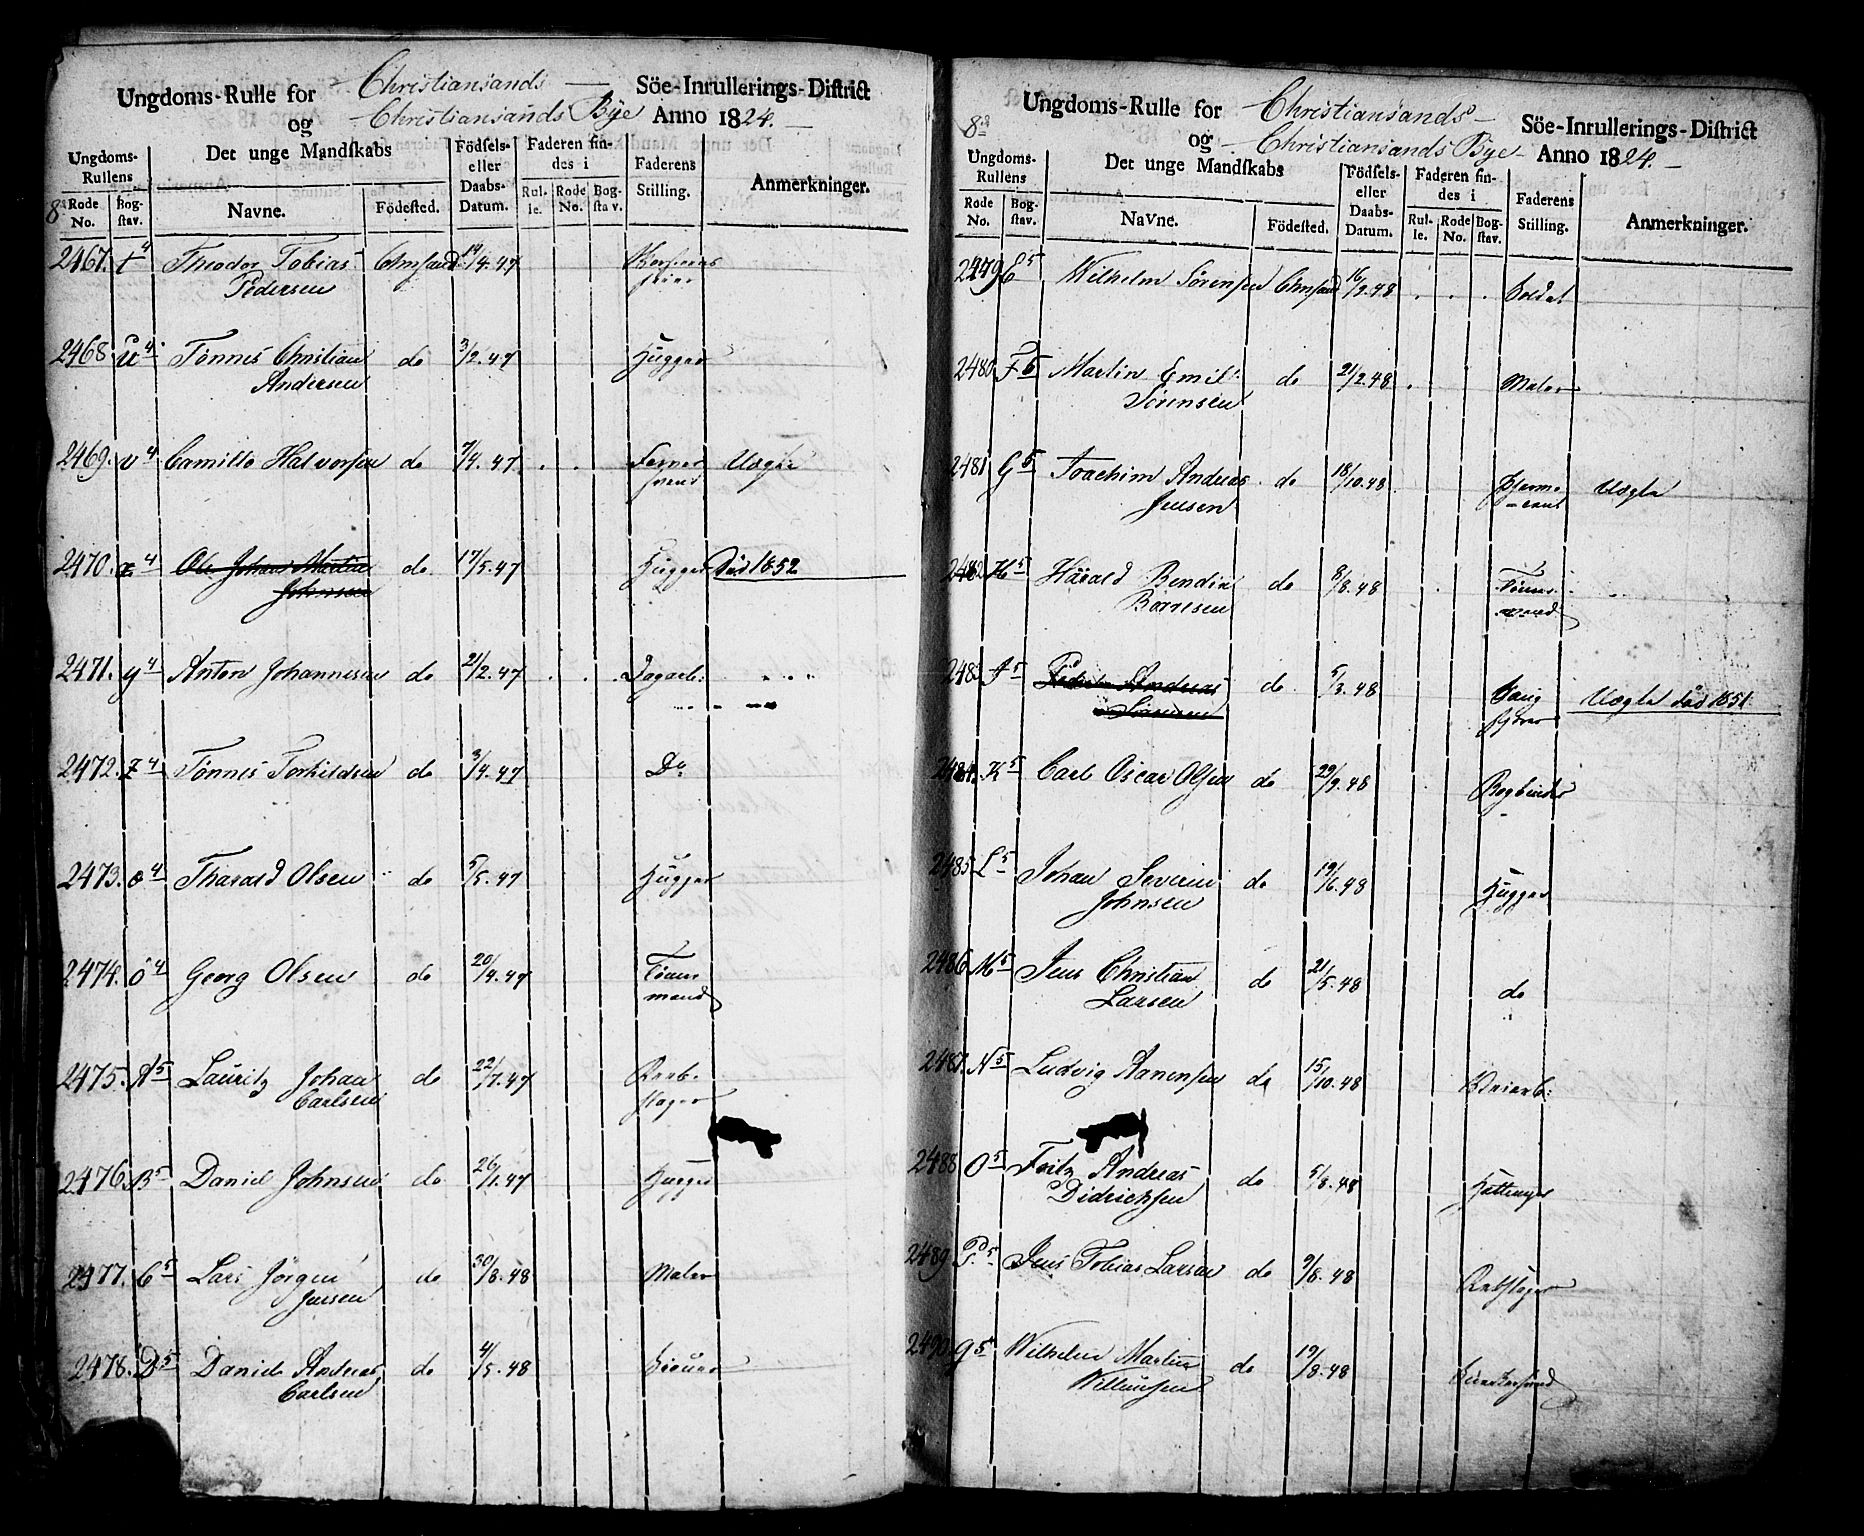 Ungdoms-Rulle for Christiansands Söe-Inrullerings-District
og Christiansands Bÿe Anno 1824.
Ungdoms-Rullens
Det unge Mandskabs
Födsels- eller Daabs-Datum.
Faderen findes i
Faderens Stilling.
Anmerkninger.
Rode No.
Bogstav.
Navne.
Födested.
Rulle.
Rode No.
Bogstav.
2467. t4 Theodor Tobias Chrsand 14/4.47
Pedersen
2468 u4 Tönnes Christian do 3/2.47 Hugger
Andersen
2469. v4 Camillo Halvorsen do 7/4.47 Uægte
2470. x4 Ole Johan Martin do. 17/5.47 Hugger Död 1852
Johnsen
2471. y4 Anton Johannesen do 21/2.47 Dagarb:
2472. z4 Tönnes Torkildsen do 3/4.47 Do
2473. æ4 Tharald Olsen do 5/5.47 Hugger
2474. ö4 Georg Olsen do 20/4.47 Tömmermand
2475. A5 Lauritz Johan do 22/7.47 Reebslager
Carlsen
2476. B5 Daniel Johnsen do 26/1.47 Hugger
2477. C5 Lars Jörgen do 30/8.48 Maler
Jensen
2478. D5 Daniel Andreas do 4/5.48
Carlsen
Ungdoms-Rulle for Christiansands
Söe-Inrullerings-District
og Christiansands Bye Anno 1824.
Ungdoms-Rullens
Det unge Mandskabs
Födsels- eller Daabs-Datum.
Faderen findes i
Faderens Stilling.
Anmerkninger.
Rode No.
Bogstav.
Navne.
Födested.
Rulle.
Rode No.
Bogstav.
2479 E5 Wilhelm Sörensen Chrsand 16/2.48 Soldat
2480 F5 Martin Emil do 21/2.48 Maler
Sörensen
2481 G5 Joachim Andreas do 18/10.48 Uægte
Jensen
2482 H5 Harald Bendix do 8/8.48 Tömmermand
Börresen
2483 do. 5/3.48 Uægte död 1851
Andreas
2484. K5 Carl Oscar Olsen do 29/9.48 Bogbinder
2485 L5 Johan Severin do 19/6.48 Hugger
Johnsen
2486 M5 Jens Christian do 21/5.48 do
Larsen
2487. N5 Ludvig Aanensen do 15/10.48
2488 O5 Fritz Andreas do 5/8.48
Didrichsen
2489 P5 Jens Tobias Larsen do 9/8.48 Rebslager
2490. Q5 Wilhelm Martin do 19/8.48
Willumsen